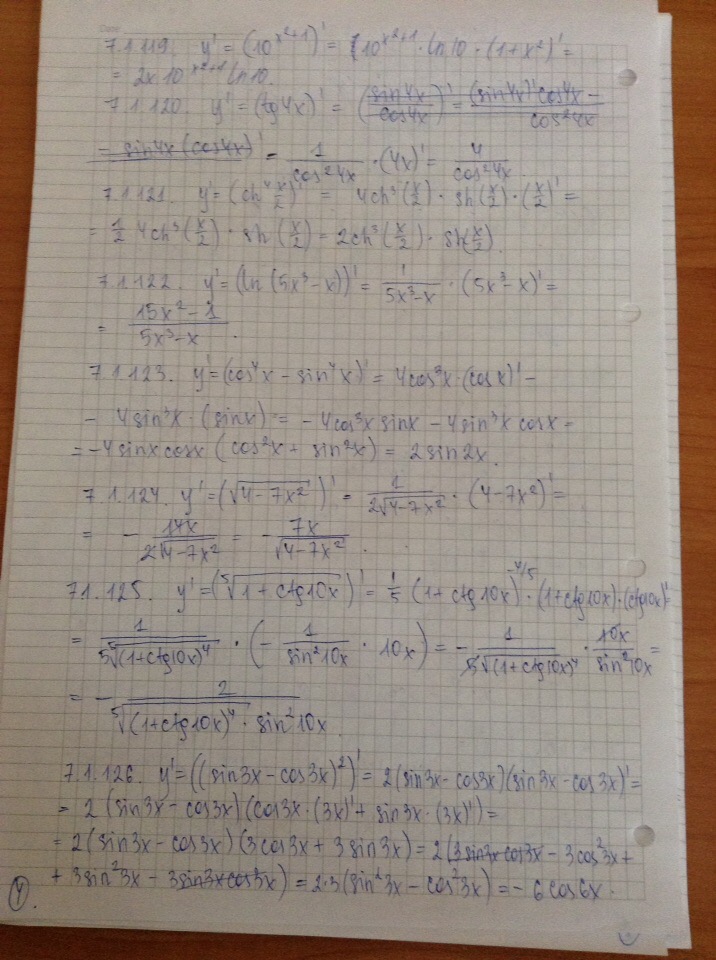 7.1.119. y' = (10^{x²+1})' = 10^{x²+1} · ln10 · (1+x²)' =
= 2x·10^{x²+1} ln10.
7.1.120. y' = (tg4x)' = (sin4x/cos4x)' = (sin4x)'cos4x −/cos²4x
− sin4x(cos4x)' = 1/cos²4x · (4x)' = 4/cos²4x.
7.1.121. y' = (ch⁴ x/2)' = 4ch³(x/2) · sh(x/2) · (x/2)' =
= 1/2 4ch³(x/2) · sh(x/2) = 2ch³(x/2) · sh(x/2).
7.1.122. y' = (ln(5x³−x))' = 1/(5x³−x) · (5x³−x)' =
= (15x²−1)/(5x³−x).
7.1.123. y' = (cos⁴x − sin⁴x)' = 4cos³x·(cosx)' −
− 4sin³x · (sinx)' = −4cos³x sinx − 4sin³x cosx =
= −4sinx cosx (cos²x + sin²x) = 2sin2x.
7.1.124. y' = (√(4−7x²))' = 1/(2√(4−7x²)) · (4−7x²)' =
= − 14x/(2√(4−7x²)) = − 7x/√(4−7x²).
7.1.125. y' = (⁵√(1+ctg10x))' = 1/5 (1+ctg10x)^{−4/5} · (1+ctg10x)·(ctg10x)' =
= 1/(5 ⁵√(1+ctg10x)⁴) · (− 1/sin²10x · 10x) = − 1/(5 ⁵√(1+ctg10x)⁴) · 10x/sin²10x =
= − 2/(⁵√(1+ctg10x)⁴ · sin²10x).
7.1.126. y' = ((sin3x−cos3x)²)' = 2(sin3x−cos3x)(sin3x−cos3x)' =
= 2(sin3x−cos3x)(cos3x·(3x)' + sin3x·(3x)') =
= 2(sin3x−cos3x)(3cos3x + 3sin3x) = 2(3sin3x cos3x − 3cos²3x +
+ 3sin²3x − 3sin3x cos3x) = 2·3(sin²3x − cos²3x) = −6cos6x.